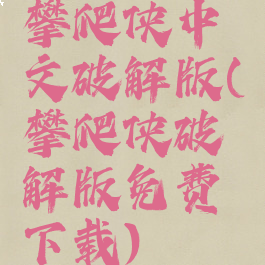 攀爬侠中
文破解版(
攀爬侠破
解版免费
下载)